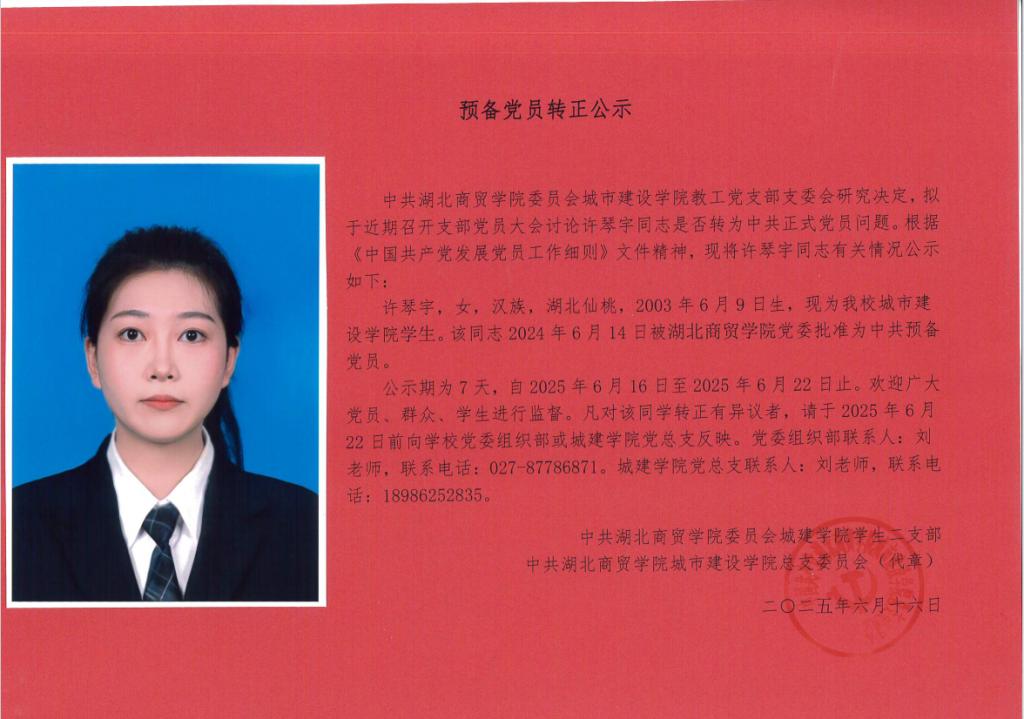 预备党员转正公示
中共湖北商贸学院委员会城市建设学院教工党支部支委会研究决定，拟
于近期召开支部党员大会讨论许琴宇同志是否转为中共正式党员问题。根据
《中国共产党发展党员工作细则》文件精神，现将许琴宇同志有关情况公示
如下：
许琴宇，女，汉族，湖北仙桃，2003 年 6 月 9 日生，现为我校城市建
设学院学生。该同志 2024 年 6 月 14 日被湖北商贸学院党委批准为中共预备
党员。
公示期为 7 天，自 2025 年 6 月 16 日至 2025 年 6 月 22 日止。欢迎广大
党员、群众、学生进行监督。凡对该同学转正有异议者，请于 2025 年 6 月
22 日前向学校党委组织部或城建学院党总支反映。党委组织部联系人：刘
老师，联系电话：027-87786871。城建学院党总支联系人：刘老师，联系电
话：18986252835。
中共湖北商贸学院委员会城建学院学生二支部
中共湖北商贸学院城市建设学院总支委员会（代章）
二〇二五年六月十六日